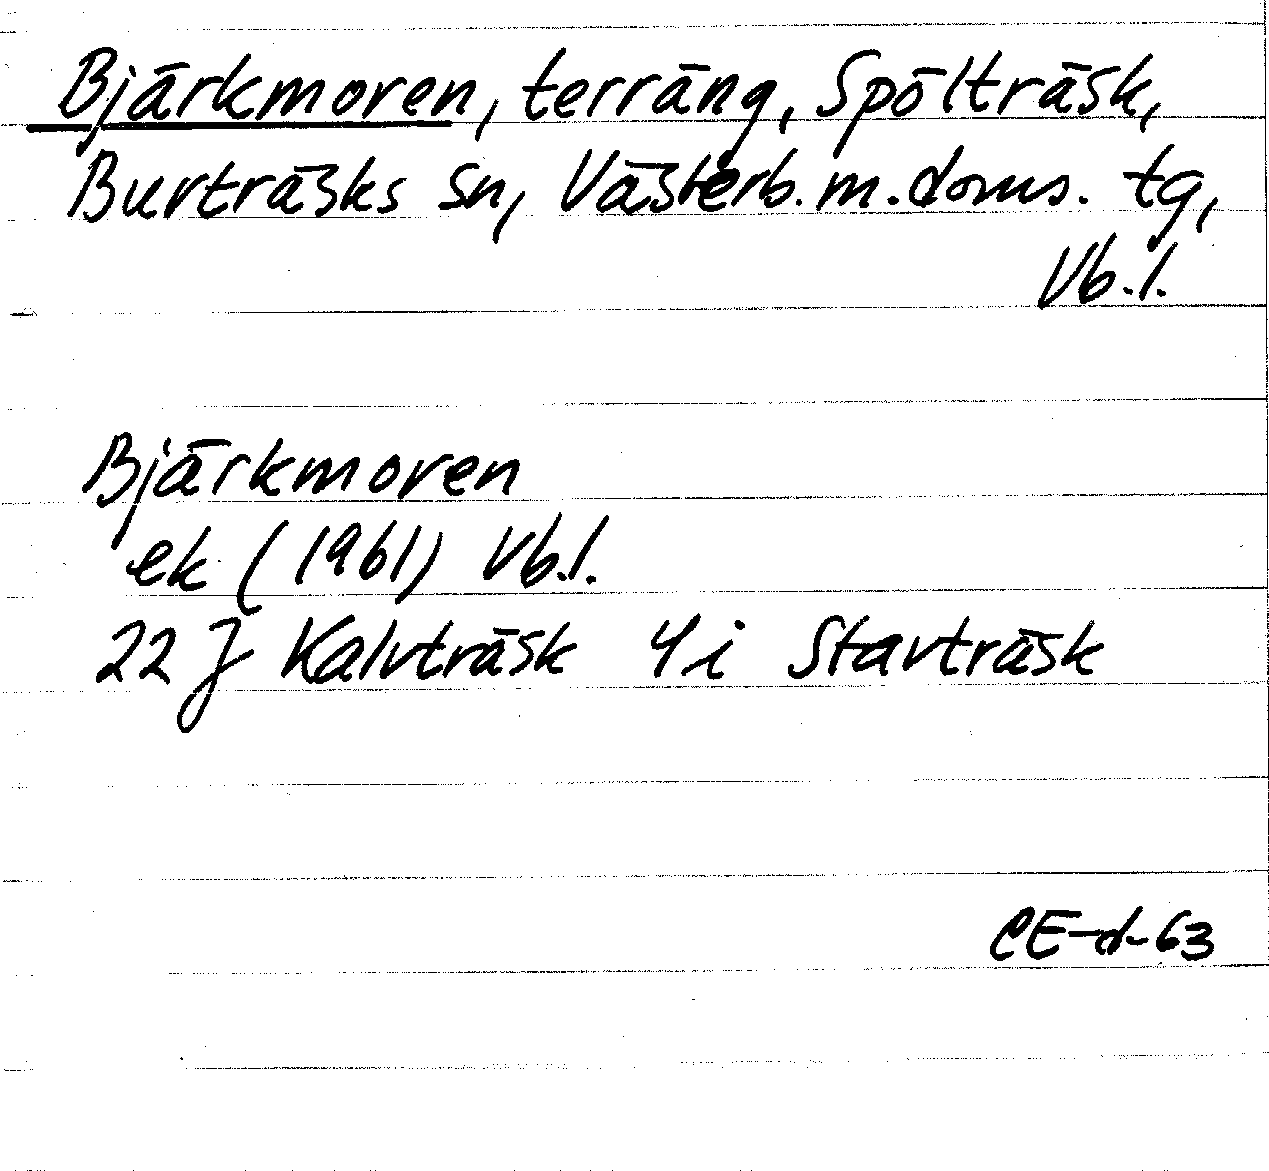 Bjärkmoren, terräng, Spölträsk,
Burträsks sn, Västerb. m. doms. tg,
Vb. l.
Bjärkmoren
ek (1961) Vb. l.
22 J Kalvträsk 4 i Stavträsk
CE-d-63